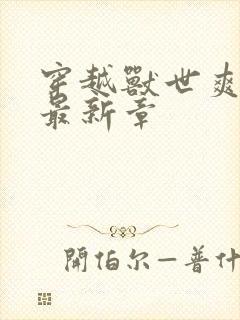 穿越獸世爽
最新章
開伯尔—普什